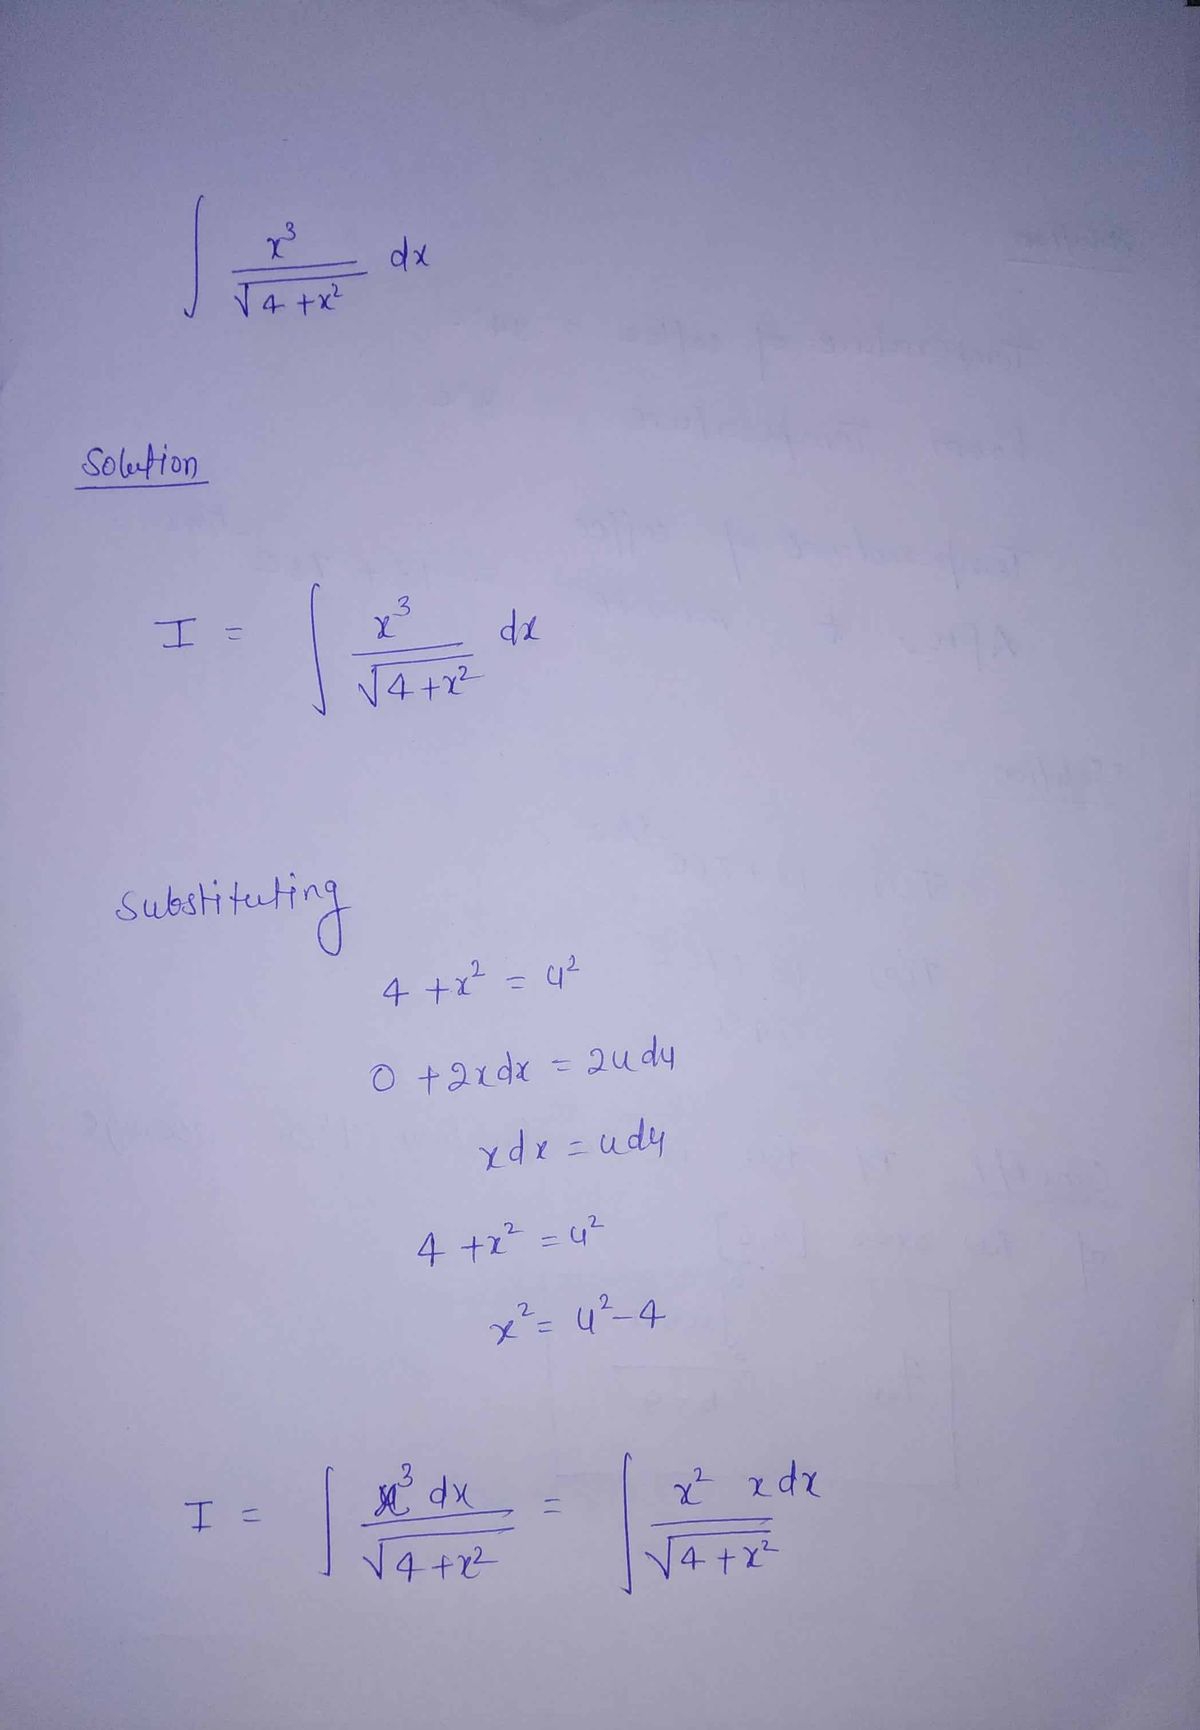 ∫ x³/√(4+x²) dx
Solution
I = ∫ x³/√(4+x²) dx
Substituting
4 + x² = u²
0 + 2xdx = 2udu
xdx = udu
4 + x² = u²
x² = u² - 4
I = ∫ x³ dx/√(4+x²) = ∫ x² x dx/√(4+x²)